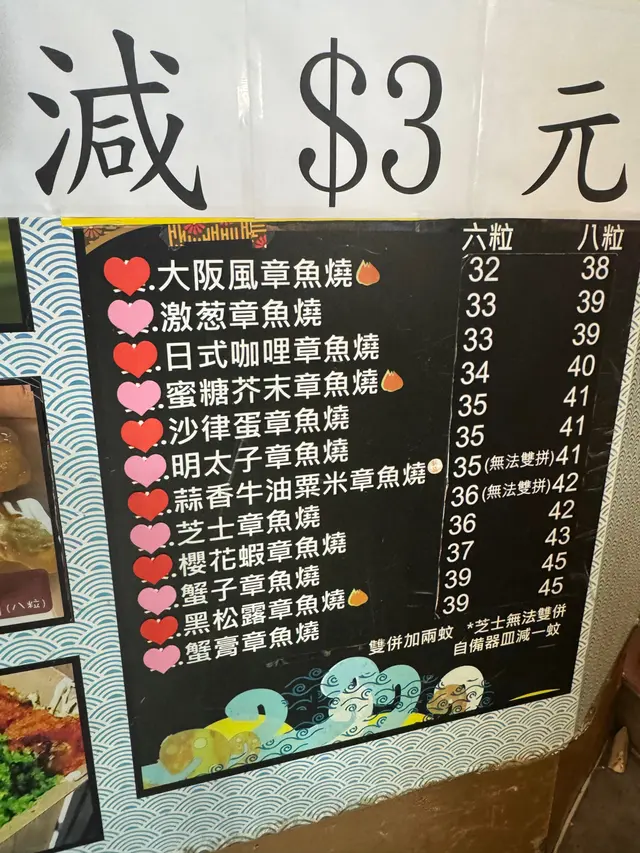 減 $3 元
六粒 八粒
大阪風章魚燒 32 38
激葱章魚燒 33 39
日式咖哩章魚燒 33 39
蜜糖芥末章魚燒 34 40
沙律蛋章魚燒 35 41
明太子章魚燒 35 41
蒜香牛油粟米章魚燒 35 (無法雙拼) 41
芝士章魚燒 36 (無法雙拼) 42
櫻花蝦章魚燒 36 42
蟹子章魚燒 37 43
黑松露章魚燒 39 45
蟹膏章魚燒 39 45
雙併加兩蚊 *芝士無法雙併
自備器皿減一蚊
(八粒)